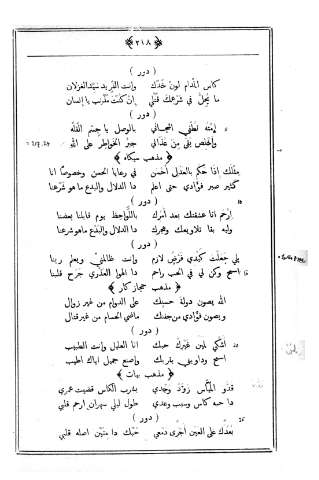 ﴿ ٣١٨ ﴾
( دور )
كاس المدام لون خدك وانت الفريد سيد الغزلان
ما يحل في شرعك قتلي ان كنت مغرب يا انسان
( دور )
امته تطفي اشجاني بالوصل يا جسم الله
واخلص بقى من عذالي جبر الخواطر على الله
﴿ مذهب سيكاه ﴾
مثلك اذا حكم بالعدل احسن في رعايا الحسن وخصوصًا انا
كتير صبر فؤادي حتى اعلم دا الدلال والبدع ما هو شرعنا
( دور )
ارحم انا عشقتك بعد امرك باللواحظ يوم قابلنا بعضنا
وليه بقا تلاويعك وهجرك دا الدلال والبدع ماهو شرعنا
( دور )
يلي جعلت كبدي فرض لازم وانت ظالمني ويعلم ربنا
اسمح وكن لي في الحب راحم دا الهوا العذري جرح قلبنا
﴿ مذهب حجاز كار ﴾
الله يصون دولة حسنك على الدوام من غير زوال
ويصون فؤادي من جفنك ماضي الحسام من غير قتال
( دور )
اشكي لمين غيرك حبك انا العليل وانت الطبيب
اسمح وداويني بقربك واصنع جميل اياك اطيب
﴿ مذهب بيات ﴾
قدو المياس زود وجدي بشرب الكاس قضيت عمري
دا حبه كاس وسبب وعدي طول ليلي سهران ارحم قلبي
( دور )
بعدك على العين اجرى دمعي حبك دا متين اصله قلبي